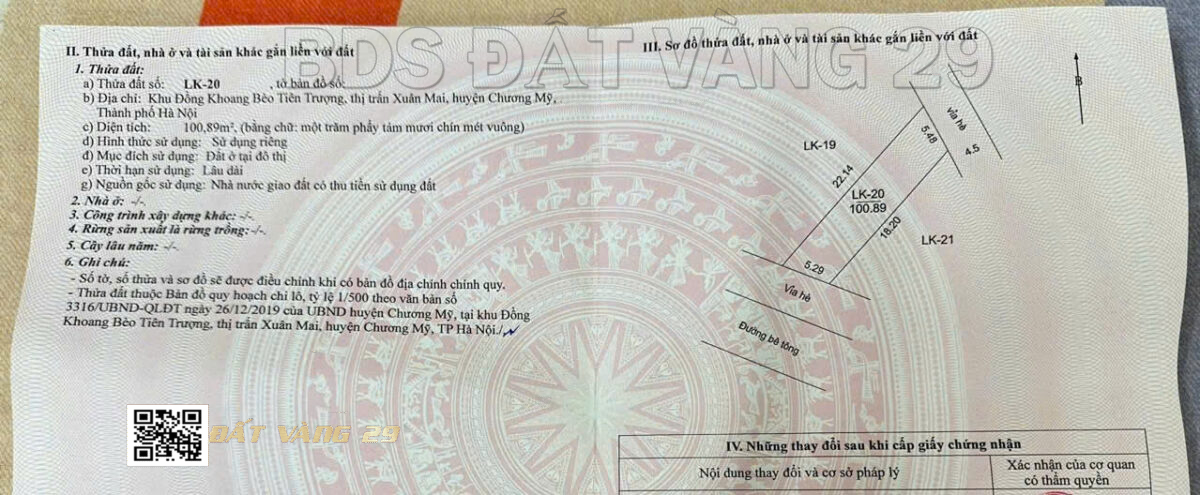 BDS ĐẤT VÀNG 29
II. Thửa đất, nhà ở và tài sản khác gắn liền với đất
1. Thửa đất:
a) Thửa đất số: LK-20 , tờ bản đồ số:
b) Địa chỉ: Khu Đồng Khoang Bèo Tiên Trượng, thị trấn Xuân Mai, huyện Chương Mỹ,
Thành phố Hà Nội
c) Diện tích: 100,89m², (bằng chữ: một trăm phẩy tám mươi chín mét vuông)
d) Hình thức sử dụng: Sử dụng riêng
đ) Mục đích sử dụng: Đất ở tại đô thị
e) Thời hạn sử dụng: Lâu dài
g) Nguồn gốc sử dụng: Nhà nước giao đất có thu tiền sử dụng đất
2. Nhà ở: -/-.
3. Công trình xây dựng khác: -/-.
4. Rừng sản xuất là rừng trồng: -/-.
5. Cây lâu năm: -/-.
6. Ghi chú:
- Số tờ, số thửa và sơ đồ sẽ được điều chỉnh khi có bản đồ địa chính chính quy.
- Thửa đất thuộc Bản đồ quy hoạch chi lô, tỷ lệ 1/500 theo văn bản số
3316/UBND-QLĐT ngày 26/12/2019 của UBND huyện Chương Mỹ, tại khu Đồng
Khoang Bèo Tiên Trượng, thị trấn Xuân Mai, huyện Chương Mỹ, TP Hà Nội./.
ĐẤT VÀNG 29
III. Sơ đồ thửa đất, nhà ở và tài sản khác gắn liền với đất
B
Vỉa hè
4.5
5.48
LK-19
22.14
LK-20
100.89
18.20
LK-21
5.29
Vỉa hè
Đường bê tông
IV. Những thay đổi sau khi cấp giấy chứng nhận
Nội dung thay đổi và cơ sở pháp lý
Xác nhận của cơ quan
có thẩm quyền